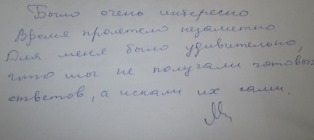 Было очень интересно
Время пролетело незаметно.
Для меня было удивительно,
что мы не получали готовых
ответов, а искали их сами.